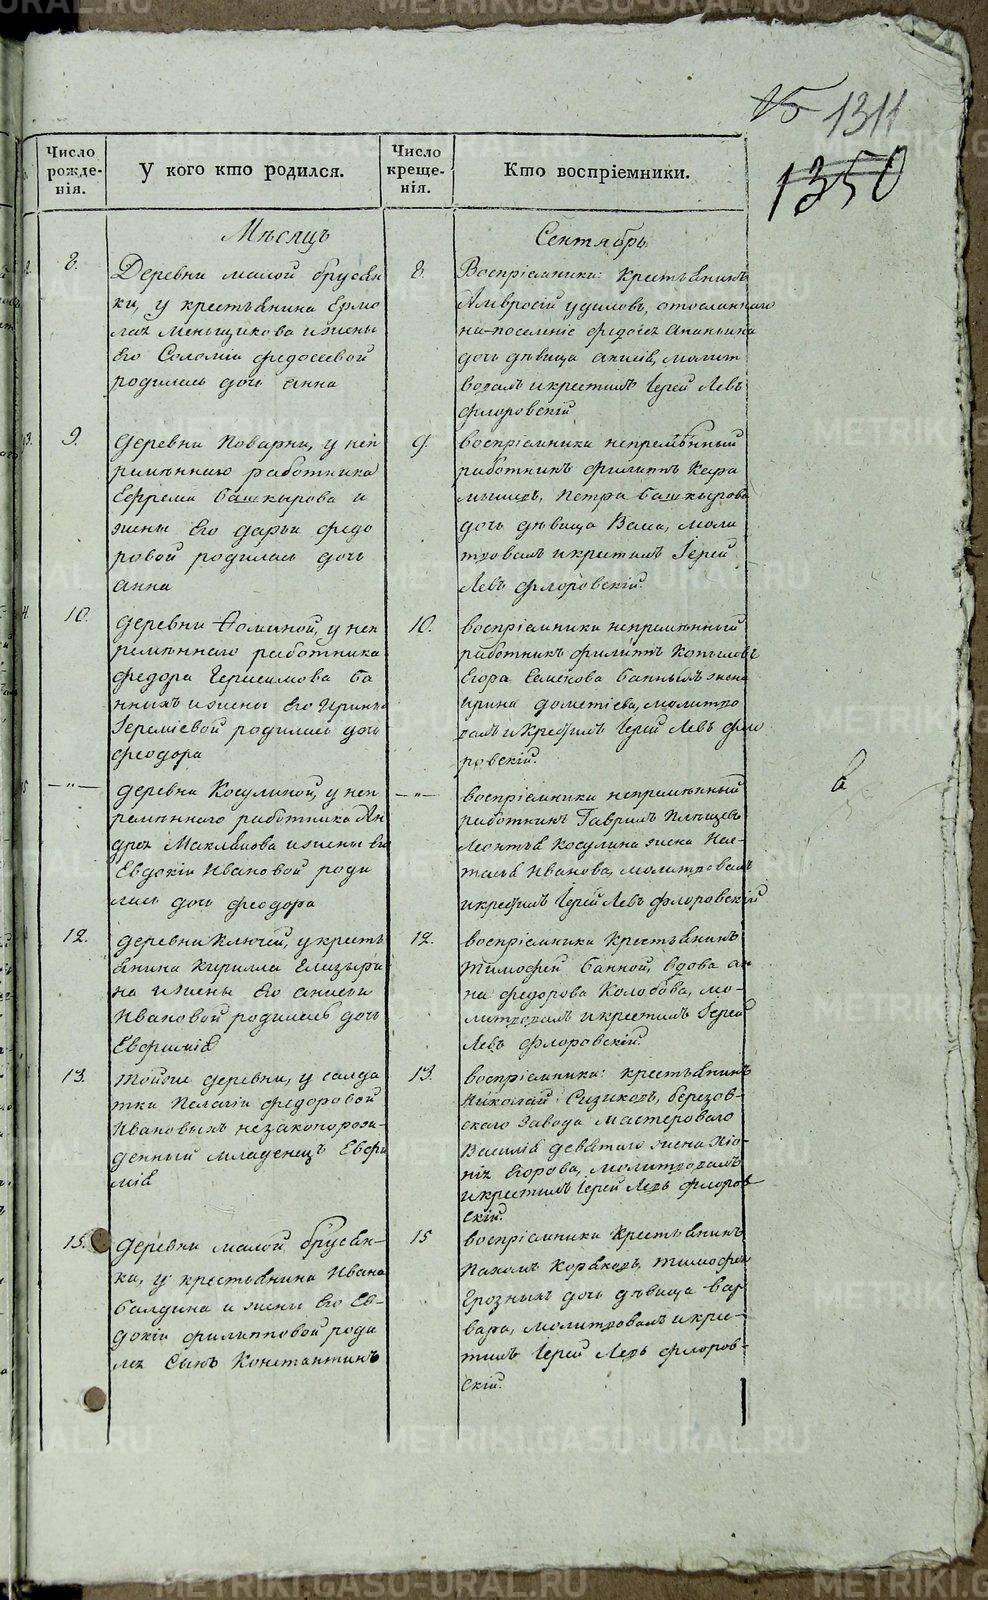 15 1311
1350
Число рожденія.
У кого кто родился.
Число крещенія.
Кто воспріемники.
Мѣсяцъ
Сентябрь
8.
Деревни малой брусян
ки, у крестьянина Ермо
лая Меньщикова и жены
Его Соломіи федосеевой
родилась дочь анна
8.
Воспріемники: крестьянинъ
Амвросій удиловъ, отосланнаго
на поселеніе федосея Ананьина
дочь дѣвица анисія, молит
вовалъ и крестилъ Іерей Левъ
флоровскій
9.
деревни Поварни, у неп
ремѣннаго работника
Ефрема башкырова и
жены Его дарьи федо
ровой родилась дочь
анна
9.
воспріемники непремѣнный
работникъ филиппъ
Петра башкырова
дочь дѣвица Васса, моли
твовалъ и крестилъ Іерей
Левъ флоровскій.
10.
деревни Фоминой, у неп
ремѣннаго работника
федора Герасимова ба
нныхъ и жены Его Ирины
Іереміевой родилась дочь
феодора
10.
воспріемники непремѣнный
работникъ филиппъ Копыловъ
Егора Семенова банныхъ жена
Ирина дометіева, молитво
валъ и крестилъ Іерей Левъ фло
ровскій.
—"—
деревни Косулиной, у неп
ремѣннаго работника Ан
дрея Маклакова и жены его
Евдокіи Ивановой роди
лась дочь феодора
—"—
воспріемники непремѣнный
работникъ Гаврилъ
Леонтья Косулина жена На
талья Иванова, молитвовалъ
и крестилъ Іерей Левъ флоровскій
12.
деревни Ключей, у кресть
янина Кирилла Елизарь
на и жены Его анисьи
Ивановой родилась дочь
Евфимія
12.
воспріемники Крестьянинъ
Тимофей банной, вдова ан
на федорова Колобова, мо-
литвовалъ и крестилъ Іерей
Левъ флоровскій.
13.
тойже деревни, у салда
тки Пелагіи федоровой
Ивановыхъ незаконорож-
денный младенецъ Евфи
мія
13.
воспріемники: крестьянинъ
Николай Сизиковъ, березов-
скаго завода мастероваго
Василія девятаго жена
Егорова, молитвовалъ
и крестилъ Іерей Левъ флоров
скій.
15.
деревни малой брусян-
ки, у крестьянина Ивана
балдина и жены Его Ев-
докіи филипповой роди
лся Сынъ Константинъ
15
воспріемники Крестьянинъ
Пахомъ Коряковъ, Тимофея
Грозныхъ дочь дѣвица Вар
вара, молитвовалъ и кре-
тилъ Іерей Левъ флоров-
скій.
METRIKI.GASO-URAL.RU